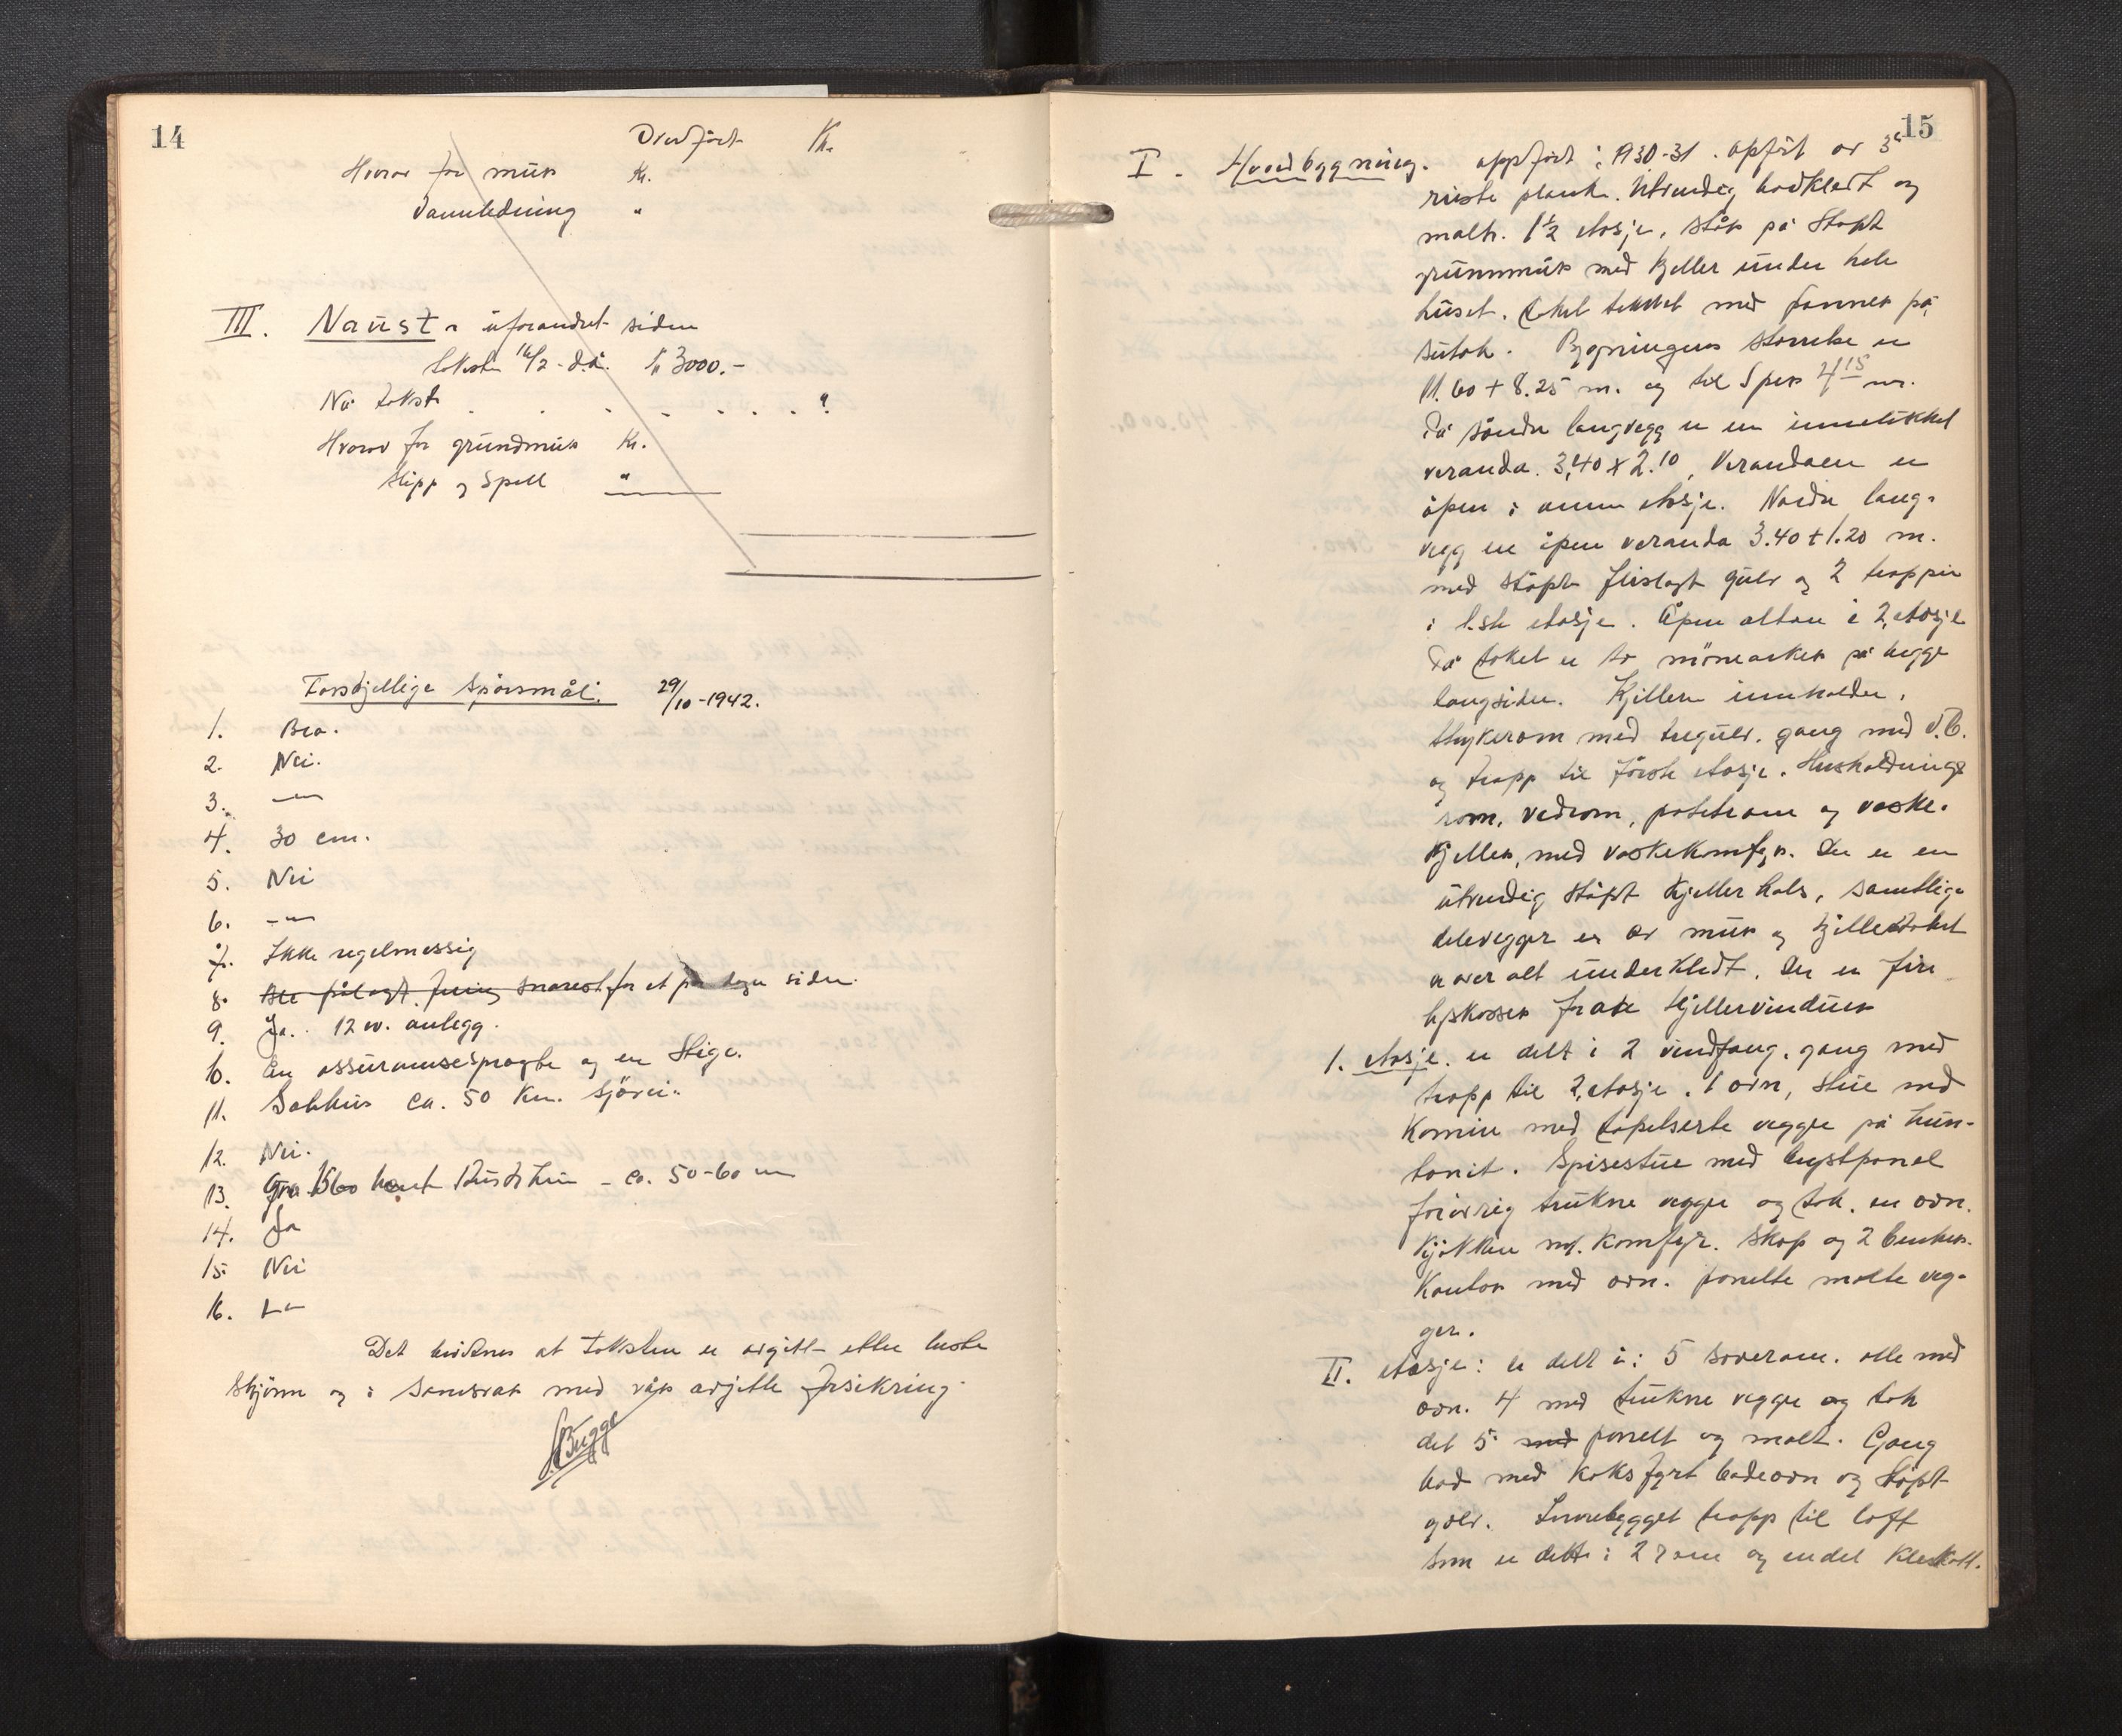 14
Overført Kr.
Hvorav for mur Kr.
Vannledning "
III. Naust - uforandret siden
taksten 16/2 - d.å. Kr 3000.-
Ny takst . . . . . . . ?
Hvorav for grundmur Kr.
Slipp og Spell "
Forskjellige Spørsmål. 29/10-1942.
1. Bra.
2. Nei.
3. -"-
4. 30 cm.
5. Nei
6. -"-
7. Ikke regelmessig
8. Ble pålagt snarest for et par dager siden.
9. Ja. 12 v. anlegg.
10. En assuransesprøyte og en Stige.
11. Solhus ca. 50 Km. sjövei.
12. Nei.
13. ca. 50-60 m
14. Ja
15. Nei
16. -"-
Det bevidnes at taksten er avgitt etter beste
Skjønn og i Samsvar med vår avgitte forsikring.
Bugge
15
I. Hovedbygning. oppført i 1930-31. Opført av 3"
pløiet plank. Utvendig bordkledt og
malt. 1 1/2 etasje, står på Støpt
grunnmur med Kjeller under hele
huset. Taket tekket med panner på
sutak. Bygningens Størrelse er
11.60 + 8.25 m. og til Sper 4 15 m.
På søndre langvegg er en innelukket
veranda. 3.40 x 2.10, Verandaen er
åpen i annen etasje. Nordre lang-
vegg en åpen veranda 3.40 + 1.20 m.
med støpt flislagt gulv og 2 trapper
i 1.ste etasje. Åpen altan i 2. etasje
På taket er to mønearker på begge
langsider. Kjelleren inneholder,
Strykerom med tregulv. gang med V.C.
og trapp til første etasje. Husholdnings
rom, vedrom, potetrom og vaske-
kjeller, med vaskekomfyr. Der er en
utvendig støpt kjellerhals, samtlige
delevegger er av mur og kjellertaket
er over alt underkledt. Der er fire
lyskasser foran kjellervinduer
1. etasje. er delt i 2 vindfang, gang med
trapp til 2. etasje. 1 ovn, Stue med
Kamin med tapetserte vegger på hun-
tonit. Spisestue med brystpanel
forøvrig trukne vegger og tak. en ovn.
Kjøkken m/. Komfyr. Skap og 2 benker.
Kontor med ovn. panelte malte veg-
ger.
II. etasje: er delt i: 5 soverom. alle med
ovn. 4 med trukne vegger og tak
det 5. med panelt og malt. Gang
bad med koksfyrt badeovn og støpt
golv. Innebygget trapp til loft
som er delt i 2 rom og endel Kleskott.